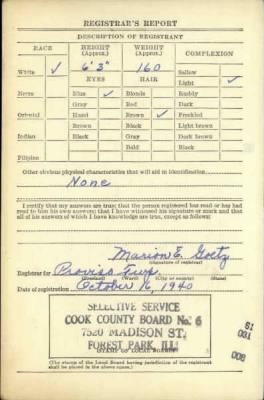 REGISTRAR'S REPORT
DESCRIPTION OF REGISTRANT
RACE HEIGHT (Approx.) WEIGHT (Approx.) COMPLEXION
6' 3" 160 Sallow
White ✓ EYES HAIR Light ✓
Negro Blue ✓ Blonde Ruddy
Gray Red Dark
Oriental Hazel Brown ✓ Freckled
Brown Black Light brown
Indian Black Gray Dark brown
Bald Black
Filipino
Other obvious physical characteristics that will aid in identification
None
I certify that my answers are true; that the person registered has read or has had
read to him his own answers; that I have witnessed his signature or mark and that
all of his answers of which I have knowledge are true, except as follows:
Marion E. Goetz
(Signature of registrar)
Registrar for Proviso Twp.
(Precinct) (Ward) (City or county) (State)
Date of registration October 16, 1940
SELECTIVE SERVICE
COOK COUNTY BOARD No. 6
7520 MADISON ST.
FOREST PARK, ILL.
(STAMP OF LOCAL BOARD)
(The stamp of the Local Board having jurisdiction of the registrant
shall be placed in the above space.)